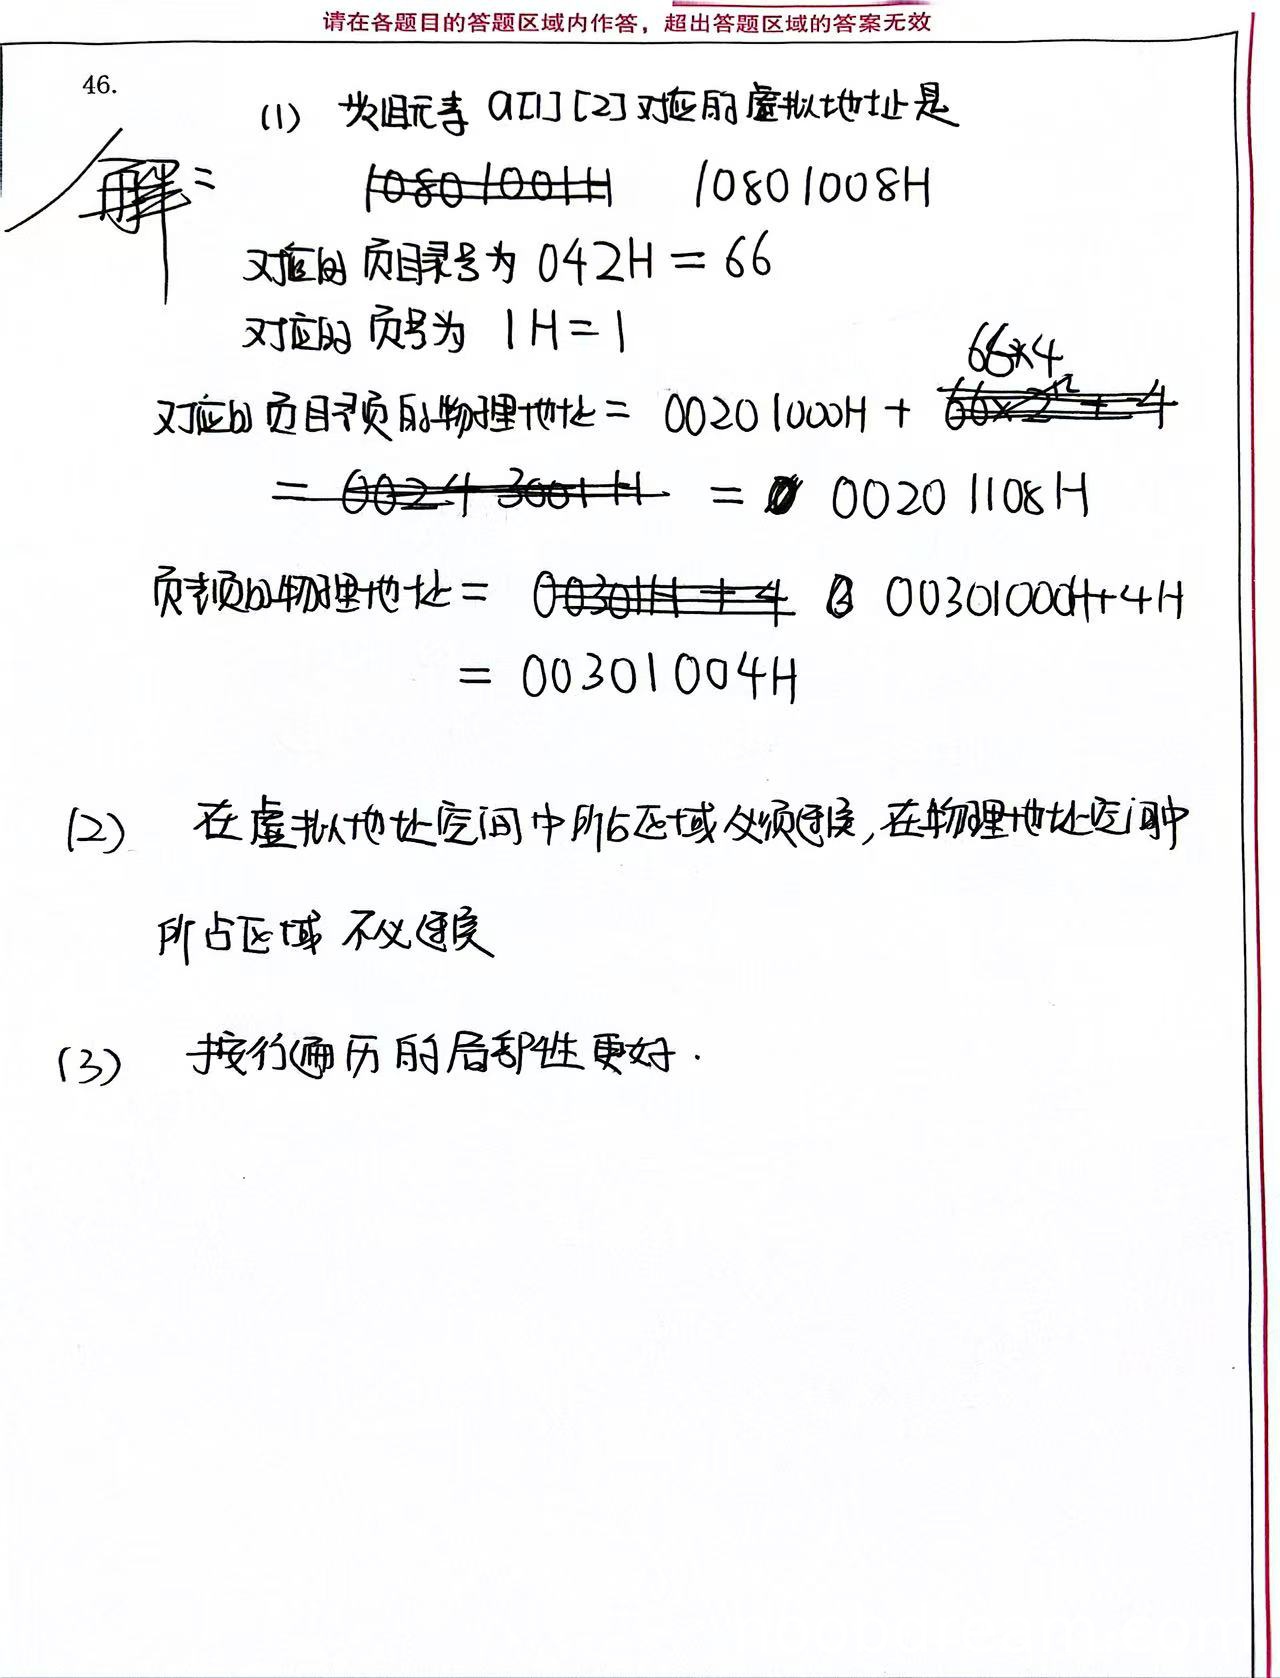 请在各题目的答题区域内作答，超出答题区域的答案无效
46.
(1) 数组元素 a[1][2]对应的虚拟地址是
解： 10801008H
对应的页目录号为 042H = 66
对应的页号为 1H = 1
66*4
对应的页目录项的物理地址 = 00201000H +
= 00201108H
页表项的物理地址 = 00301000H+4H
= 00301004H
(2) 在虚拟地址空间中所占区域必须连续，在物理地址空间中
所占区域 不必连续
(3) 按行遍历的局部性更好.